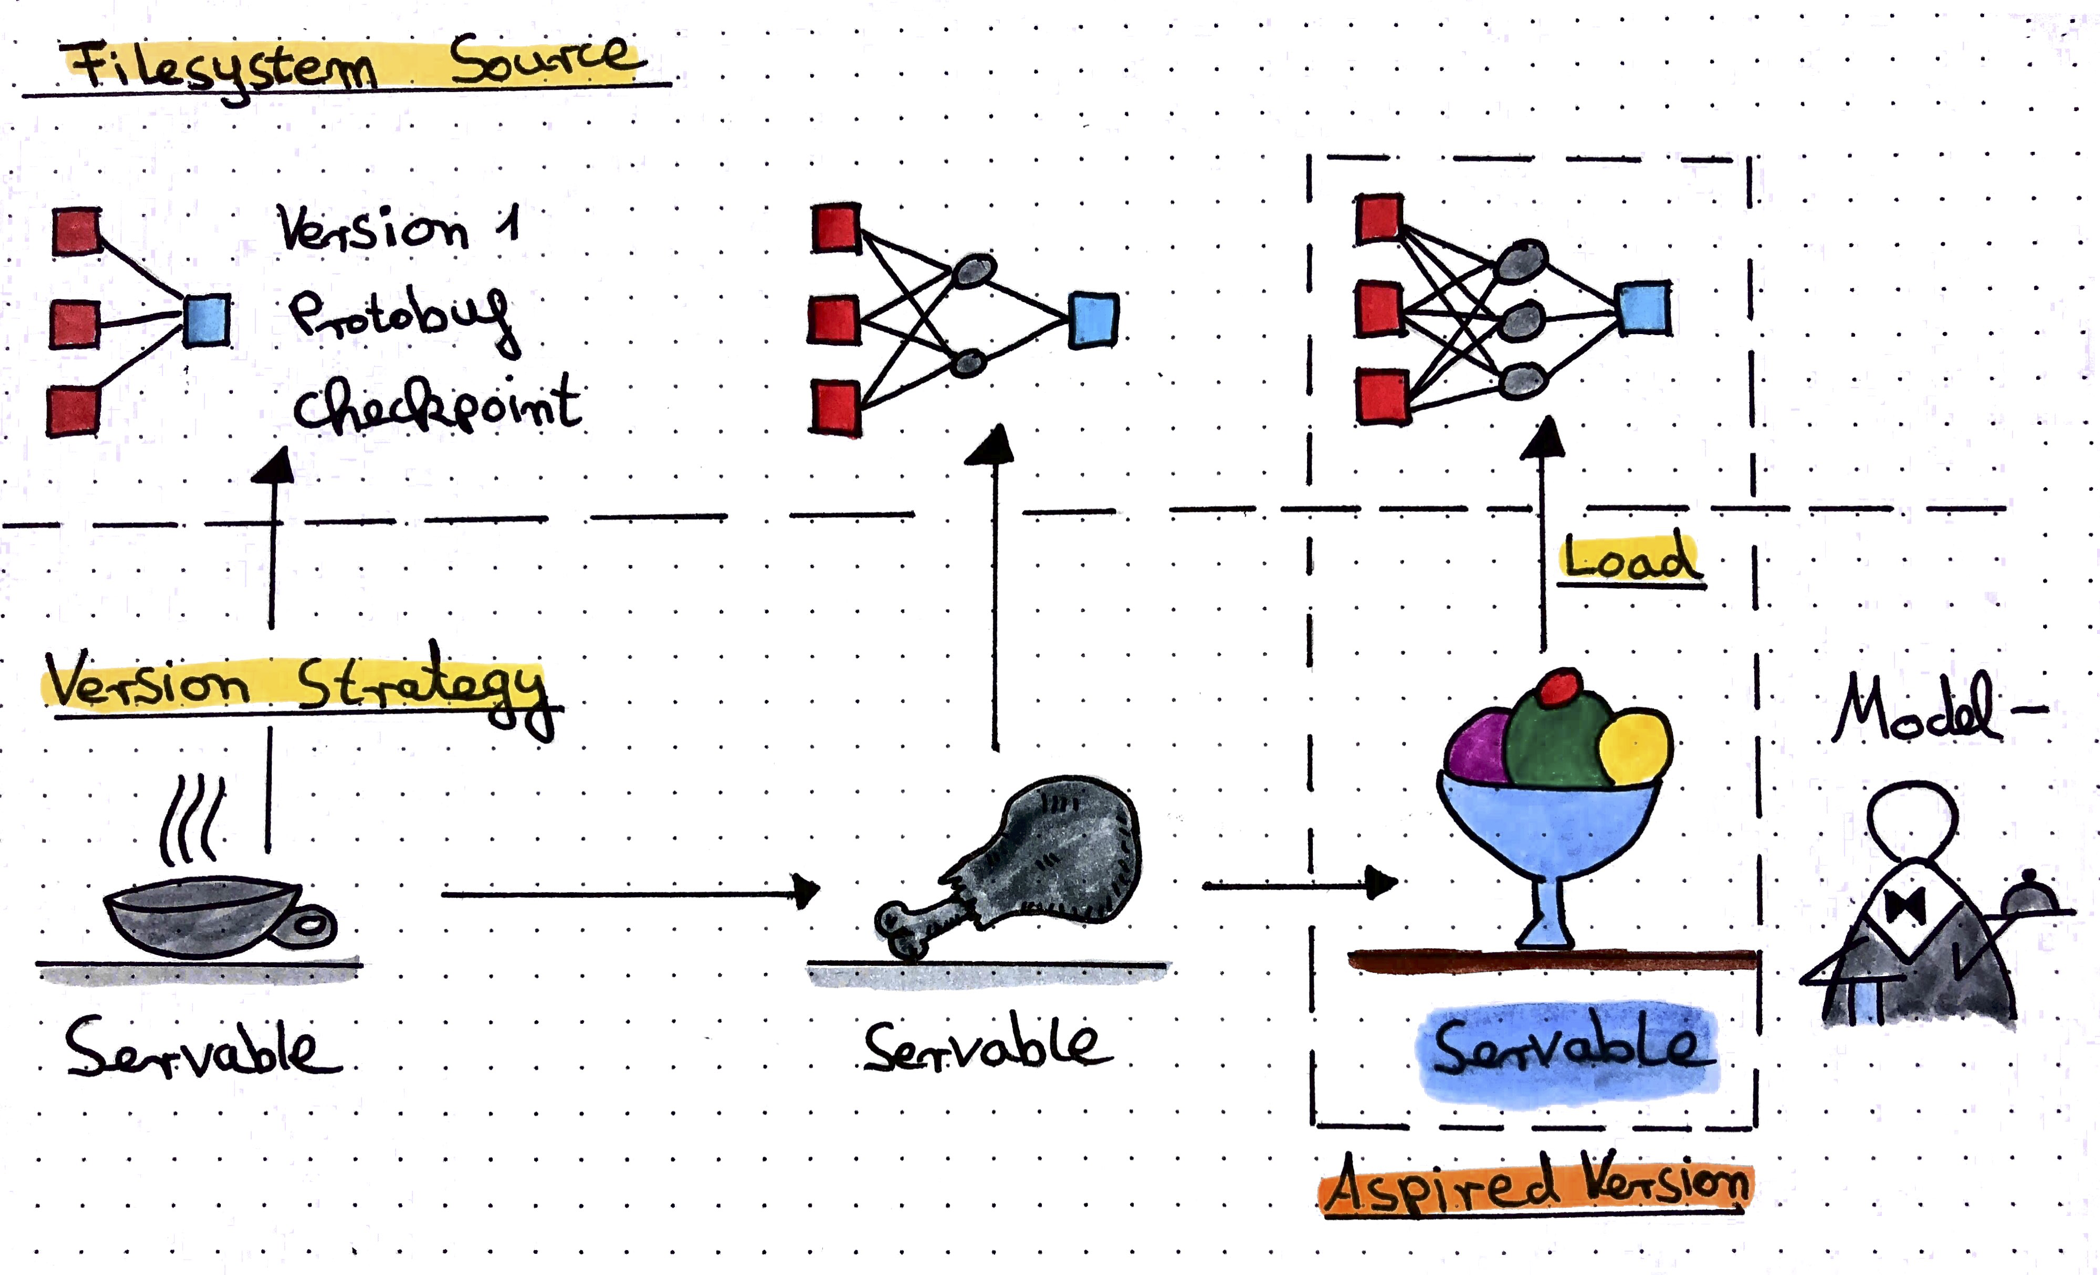 Filesystem Source
Version 1
Protobuf
Checkpoint
Load
Version Strategy
Model-
Servable
Servable
Servable
Aspired Version